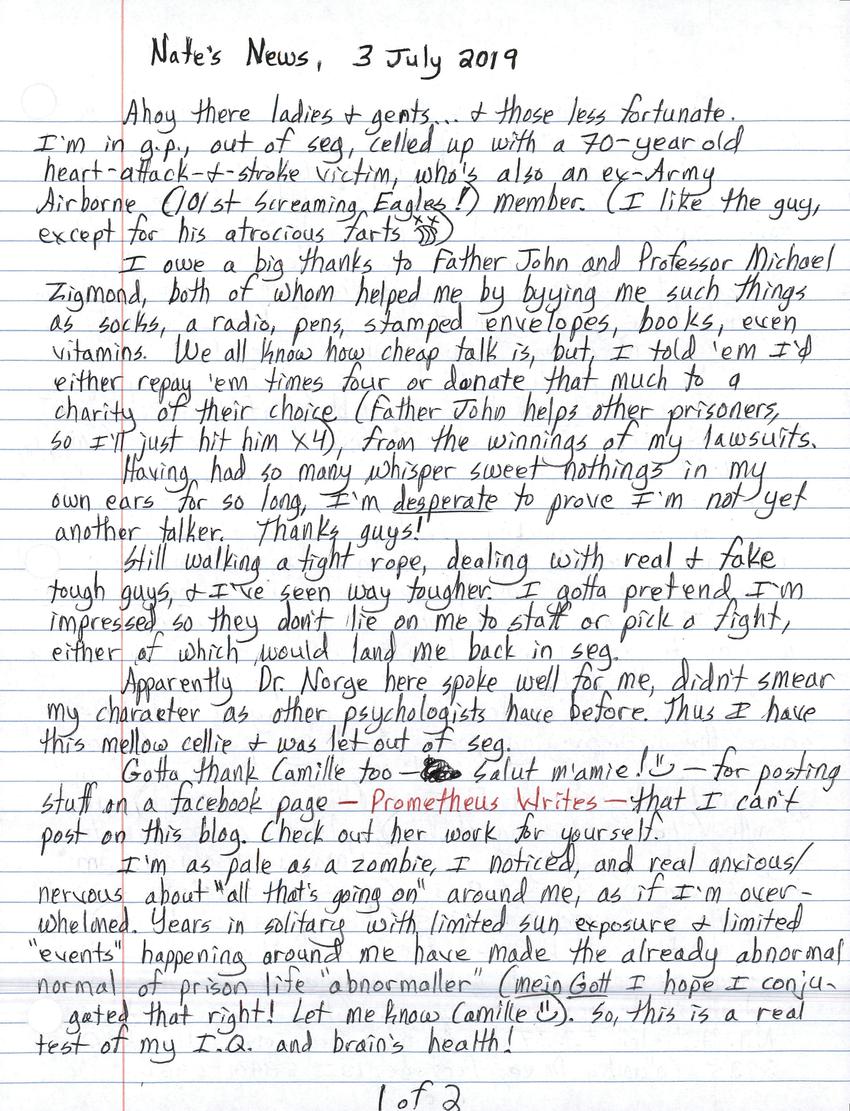 Nate's News, 3 July 2019
Ahoy there ladies & gents... & those less fortunate.
I'm in g.p., out of seg, celled up with a 70-year old
heart-attack-&-stroke victim, who's also an ex-Army
Airborne (101st Screaming Eagles!) member. (I like the guy,
except for his atrocious farts)
I owe a big thanks to Father John and Professor Michael
Zigmond, both of whom helped me by byying me such things
as socks, a radio, pens, stamped envelopes, books, even
vitamins. We all know how cheap talk is, but, I told 'em I'd
either repay 'em times four or donate that much to a
charity of their choice (Father John helps other prisoners,
so I'll just hit him x4), from the winnings of my lawsuits.
Having had so many whisper sweet nothings in my
own ears for so long, I'm desperate to prove I'm not yet
another talker. Thanks guys!
Still walking a tight rope, dealing with real & fake
tough guys, & I've seen way tougher. I gotta pretend I'm
impressed so they don't lie on me to staff or pick a fight,
either of which would land me back in seg.
Apparently Dr. Norge here spoke well for me, didn't smear
my character as other psychologists have before. Thus I have
this mellow cellie & was let out of seg.
Gotta thank Camille too — Salut m'amie! — for posting
stuff on a facebook page — Prometheus Writes — that I can't
post on this blog. Check out her work for yourself.
I'm as pale as a zombie, I noticed, and real anxious/
nervous about "all that's going on" around me, as if I'm over-
whelmed. Years in solitary with limited sun exposure & limited
"events" happening around me have made the already abnormal
normal of prison life "abnormaller" (mein Gott I hope I conju-
gated that right! Let me know Camille). So, this is a real
test of my I.Q. and brain's health!
1 of 2